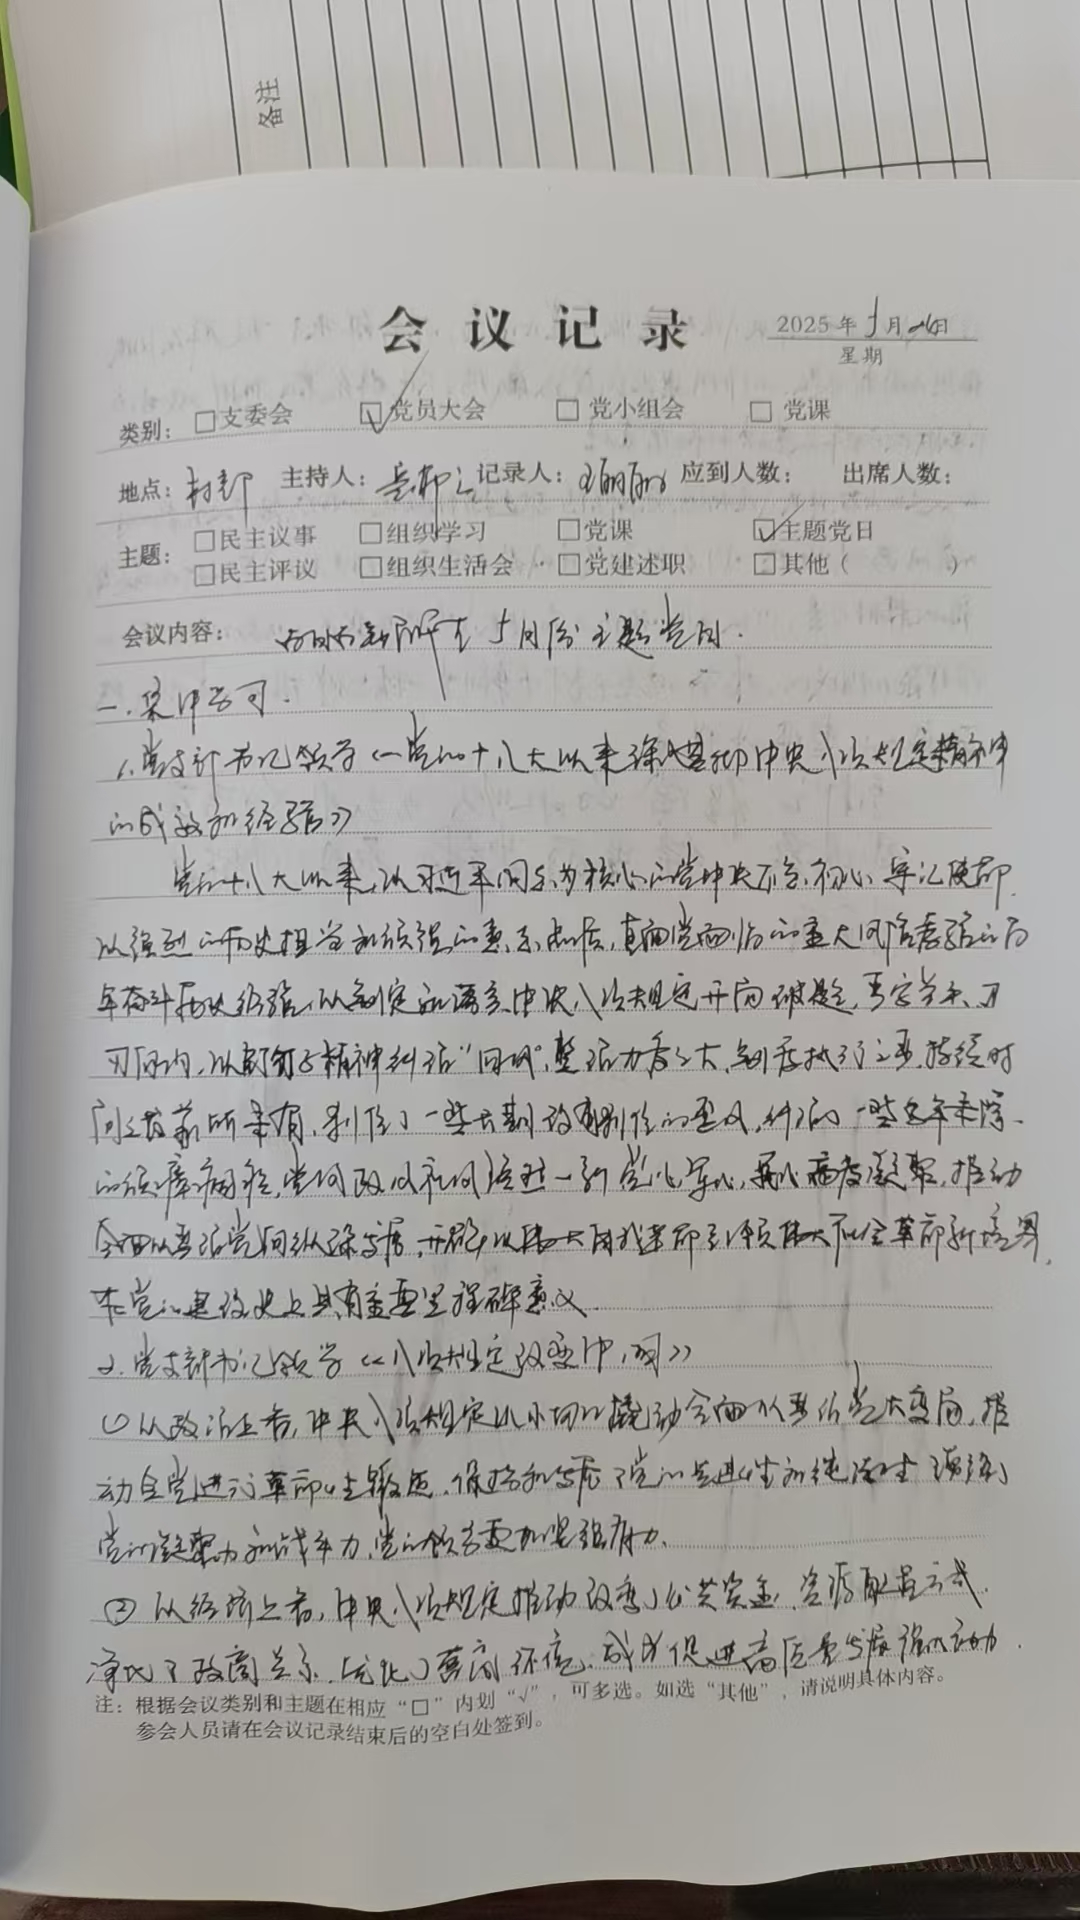 备注
会议记录
2025年5月26日
星期
类别：□支委会 ☑党员大会 □党小组会 □党课
地点：村部 主持人： 记录人：王丽丽 应到人数： 出席人数：
主题：□民主议事 □组织学习 □党课 ☑主题党日
□民主评议 □组织生活会 □党建述职 □其他（ ）
会议内容： 5月份主题党日.
一.集中学习.
1.党支部书记领学《党的十八大以来深入贯彻中央八项规定精神
的成效和经验》
党的十八大以来,以习近平同志为核心的党中央不忘初心、牢记使命,
以强烈的历史担当和顽强的意志品质,直面党面临的重大风险考验和百
年奋斗历史经验,以制定和落实中央八项规定开局破题,
以钉钉子精神纠治“四风”,整治力度之大、制度执行之严、持续时
间之长前所未有,刹住了一些长期没有刹住的歪风,纠治了一些多年未除
的顽瘴痼疾,党风政风社风焕然一新,党心军心民心高度凝聚,推动
全面从严治党向纵深发展,开辟了以伟大自我革命引领伟大社会革命新境界,
在党的建设史上具有重要里程碑意义.
2.党支部书记领学《八项规定改变中国》
①从政治上看,中央八项规定以小切口撬动全面从严治党大变局,推
动全党进行革命性锻造,保持和发展了党的先进性和纯洁性,
党的凝聚力和战斗力,党的领导更加坚强有力.
②从经济上看,中央八项规定推动改变了公共资金、资源配置方式,
净化了政商关系,优化了营商环境,成为促进高质量发展强大动力.
注：根据会议类别和主题在相应“□”内划“√”，可多选。如选“其他”，请说明具体内容。
参会人员请在会议记录结束后的空白处签到。